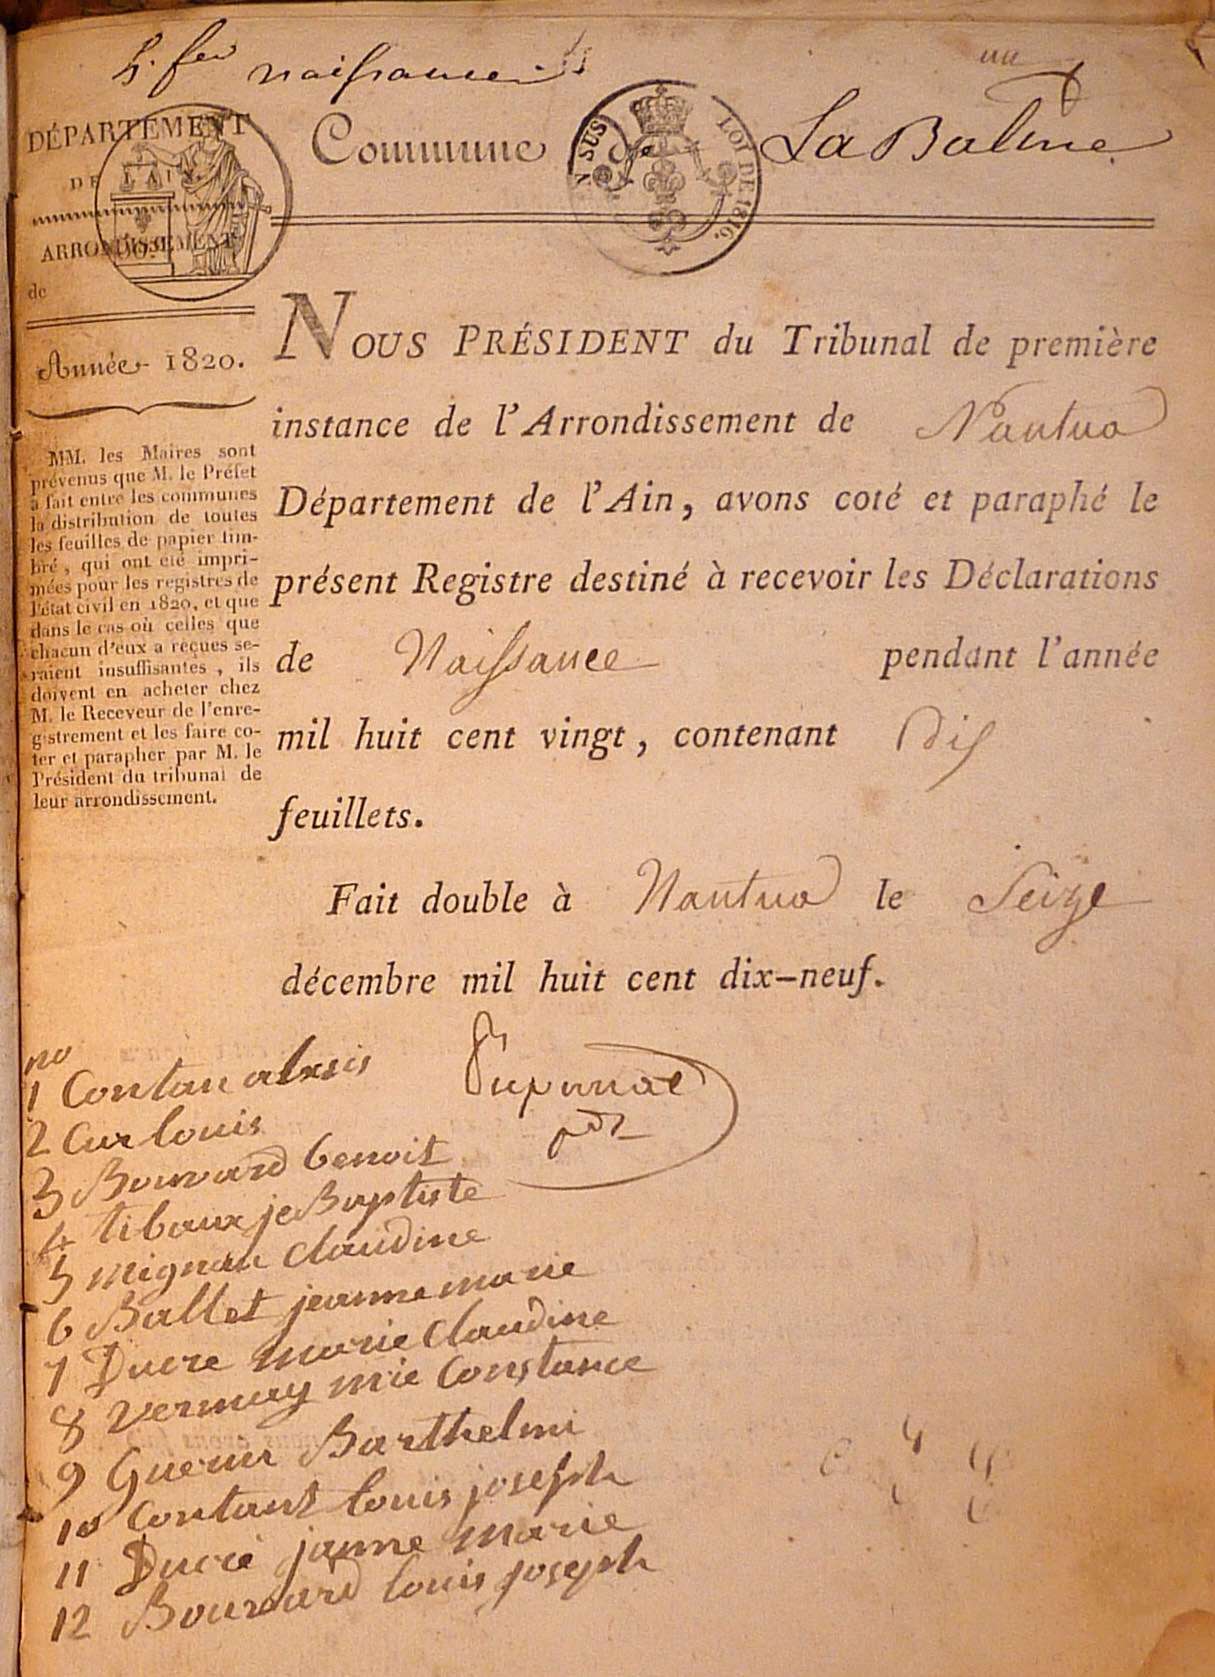 naissance
DÉPARTEMENT
DE L'AIN.
ARRONDISSEMENT
de
Commune de La Balme
EN SUS
LOI DE 1816.
Année 1820.
MM. les Maires sont
prévenus que M. le Préfet
a fait entre les communes
la distribution de toutes
les feuilles de papier tim-
bré, qui ont été impri-
mées pour les registres de
l'état civil en 1820, et que
dans le cas où celles que
chacun d'eux a reçues se-
raient insuffisantes, ils
doivent en acheter chez
M. le Receveur de l'enre-
gistrement et les faire co-
ter et parapher par M. le
Président du tribunal de
leur arrondissement.
NOUS PRÉSIDENT du Tribunal de première
instance de l'Arrondissement de Nantua
Département de l'Ain, avons coté et paraphé le
présent Registre destiné à recevoir les Déclarations
de Naissance pendant l'année
mil huit cent vingt, contenant Dix
feuillets.
Fait double à Nantua le Seize
décembre mil huit cent dix-neuf.
no
1 Contan alexis
2 Cur louis
3 Bouvard benoit
4 tibaux je Baptiste
5 mignan Claudine
6 Ballet jeanne marie
7 Ducre marie Claudine
8 vermay mie Constance
9 Guerin Barthelmi
10 Contant louis joseph
11 Ducré janne marie
12 Bouvard louis joseph